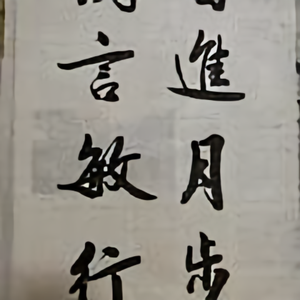 進月步
言敏行